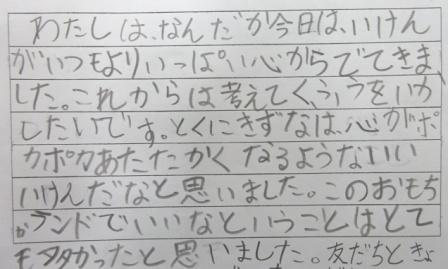 わたしは、なんだか今日は、いけん
がいつもよりいっぱい心からでてきま
した。これからは考えてく、ふうをいか
したいです。とくにきずなは、心がポ
カポカあたたかくなるようないい
いけんだなと思いました。このおもち
ランドでいいなということはとて
モタタかったと思いました。友だちときょ